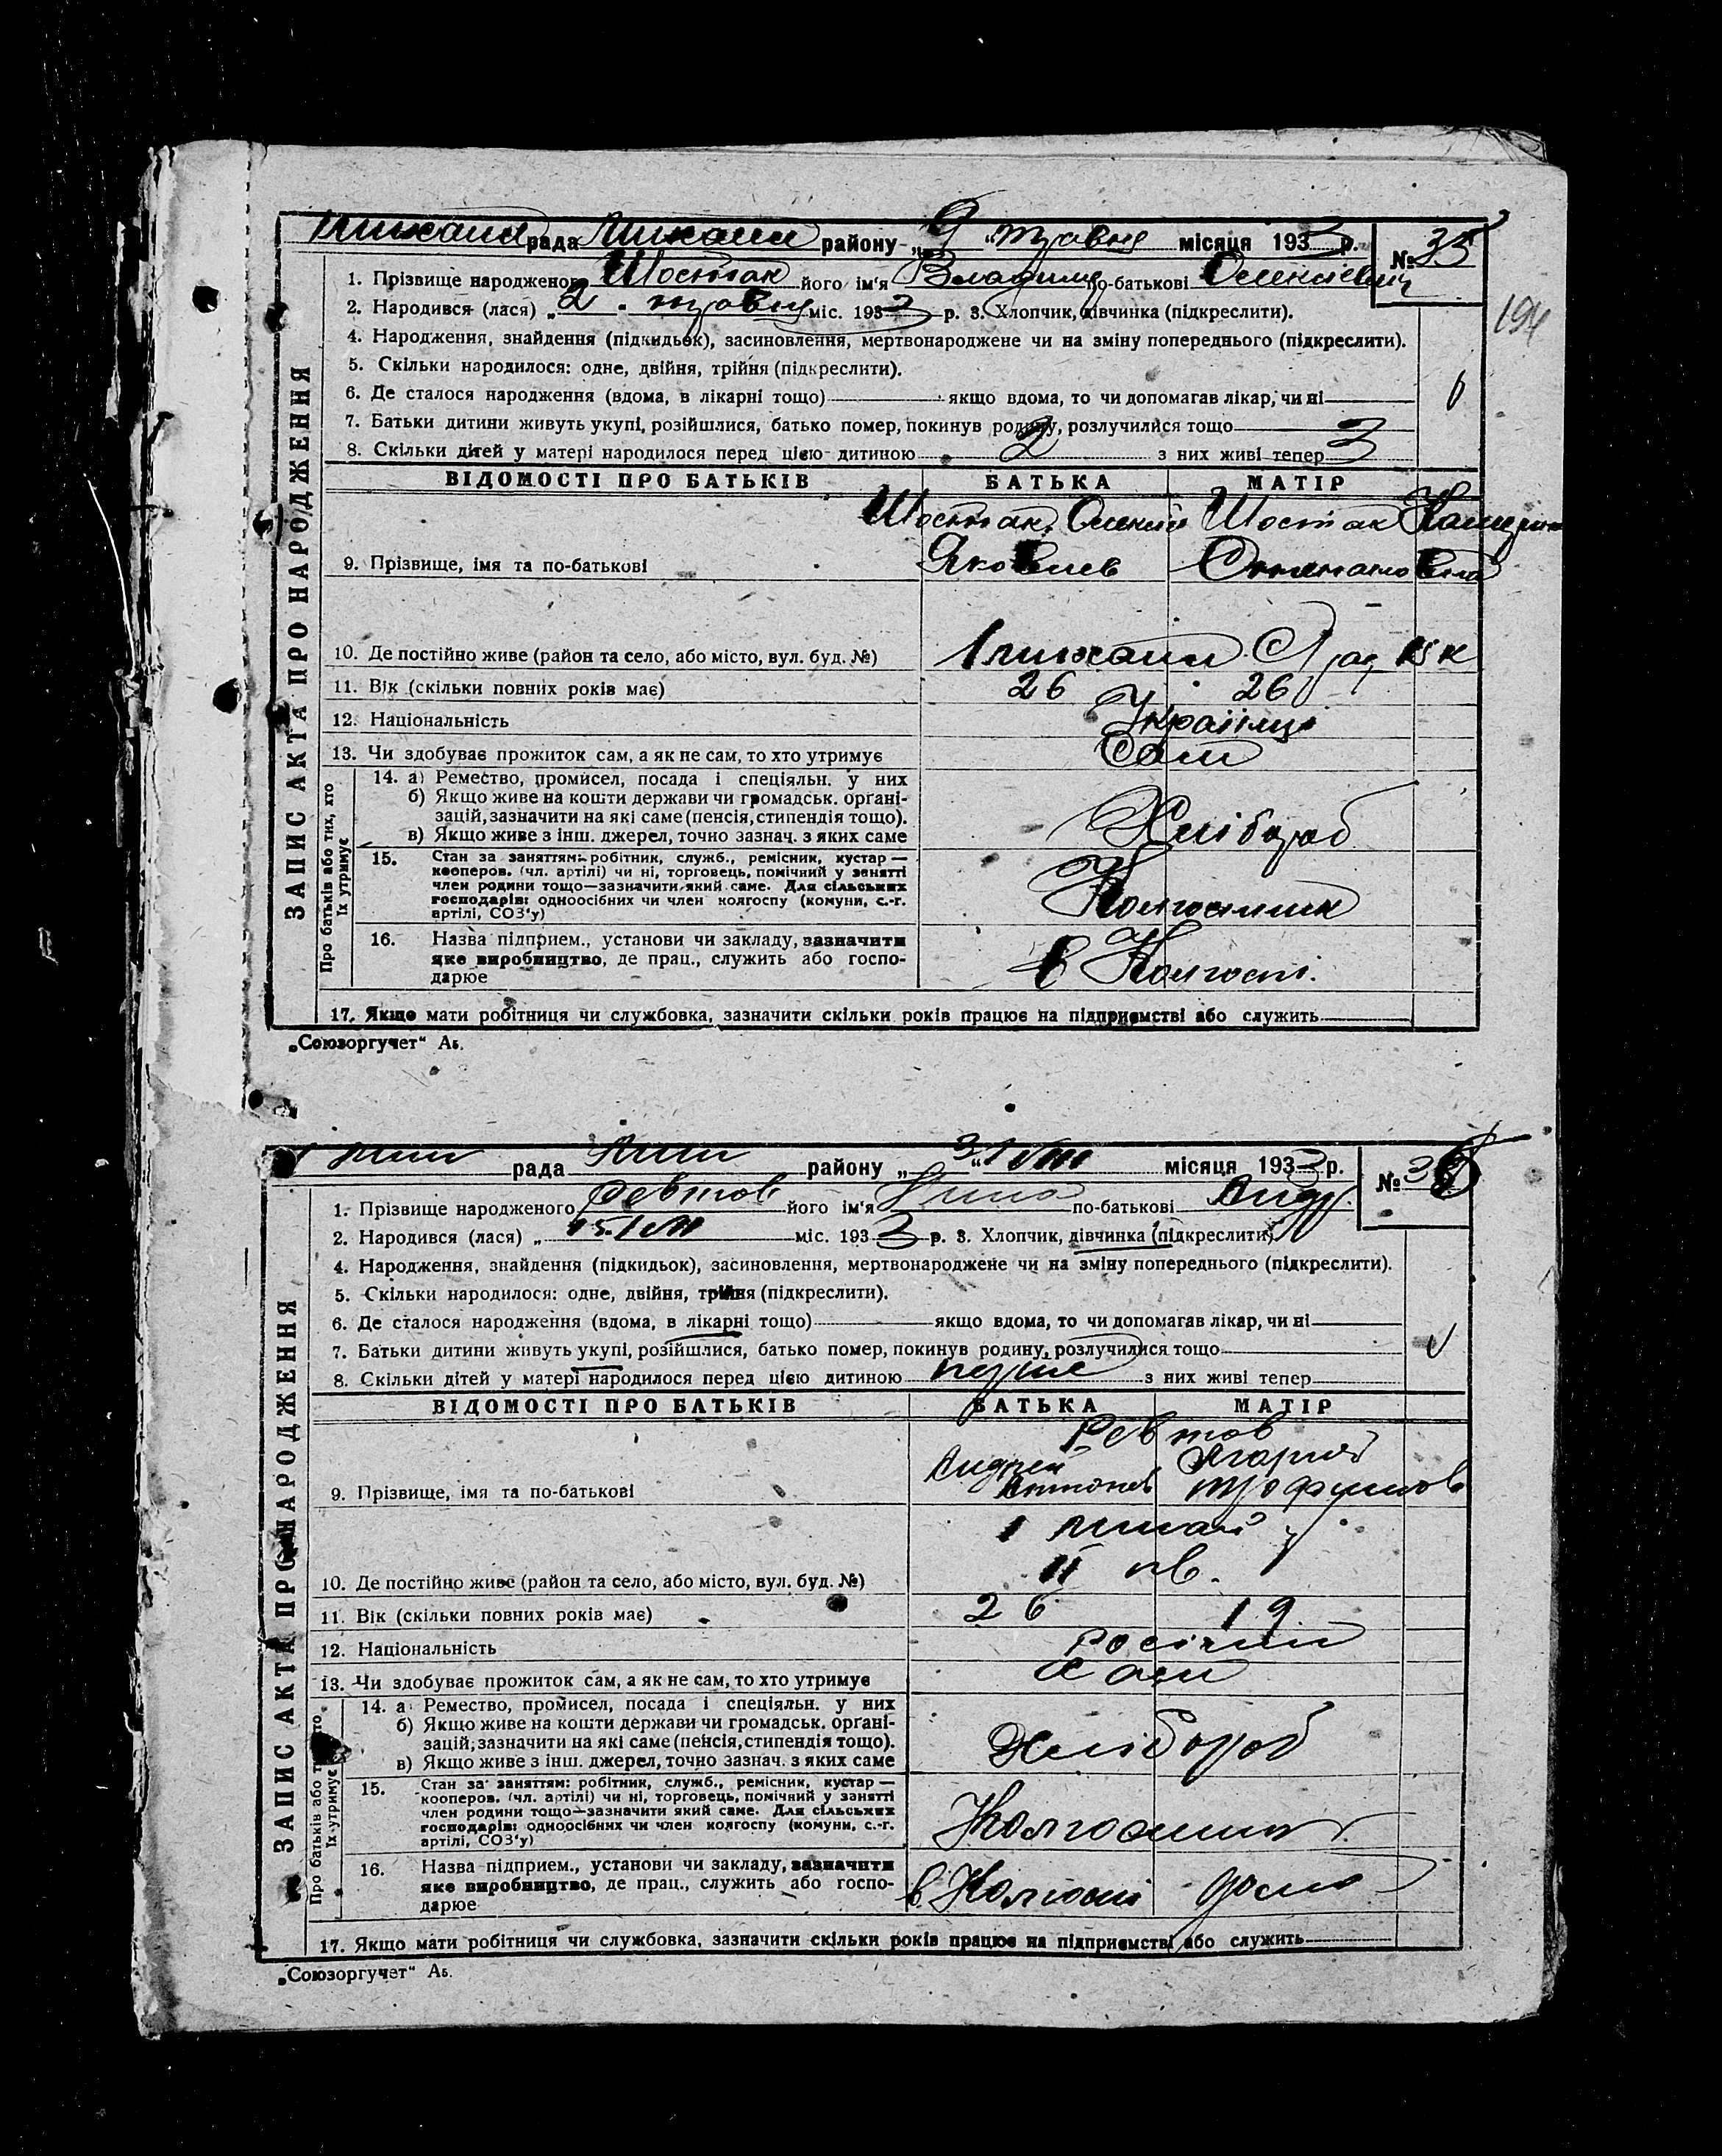 рада району „ 9 “ травня місяця 1933 р. № 35
1. Прізвище народженого Шостак його ім'я Владимир по-батькові Олексієвич
194
2. Народився (лася) „ 2 “ травня міс. 1933 р. 3. Хлопчик, дівчинка (підкреслити).
4. Народження, знайдення (підкидьок), засиновлення, мертвонароджене чи на зміну попереднього (підкреслити).
5. Скільки народилося: одне, двійня, трійня (підкреслити).
6. Де сталося народження (вдома, в лікарні тощо) якщо вдома, то чи допомагав лікар, чи ні
7. Батьки дитини живуть укупі, розійшлися, батько помер, покинув родину, розлучилися тощо
8. Скільки дітей у матері народилося перед цією дитиною 2 з них живі тепер 3
ВІДОМОСТІ ПРО БАТЬКІВ БАТЬКА МАТІР
Шостак Шостак
9. Прізвище, імя та по-батькові Яковлев
10. Де постійно живе (район та село, або місто, вул. буд. №)
11. Вік (скільки повних років має) 26 26
12. Національність Українці
13. Чи здобуває прожиток сам, а як не сам, то хто утримує Сам
14. а) Ремество, промисел, посада і спеціяльн. у них
б) Якщо живе на кошти держави чи громадськ. органі-
зацій, зазначити на які саме (пенсія, стипендія тощо).
в) Якщо живе з інш. джерел, точно зазнач. з яких саме
Хлібороб
15. Стан за заняттям: робітник, служб., ремісник, кустар —
кооперов. (чл. артілі) чи ні, торговець, помічний у занятті
член родини тощо—зазначити який саме. Для сільських
господарів: одноосібних чи член колгоспу (комуни, с.-г.
артілі, СОЗ'у)
Колгоспник
16. Назва підприєм., установи чи закладу, зазначити
яке виробництво, де прац., служить або госпо-
дарює
в Колгоспі.
17. Якщо мати робітниця чи службовка, зазначити скільки років працює на підприємстві або служить
ЗАПИС АКТА ПРО НАРОДЖЕННЯ
Про батьків або тих, хто
їх утримує
„Союзоргучет“ Аб.
рада району „ “ місяця 1933 р. № 36
1. Прізвище народженого його ім'я по-батькові Андр.
2. Народився (лася) „ міс. 1933 р. 3. Хлопчик, дівчинка (підкреслити).
4. Народження, знайдення (підкидьок), засиновлення, мертвонароджене чи на зміну попереднього (підкреслити).
5. Скільки народилося: одне, двійня, трійня (підкреслити).
6. Де сталося народження (вдома, в лікарні тощо) якщо вдома, то чи допомагав лікар, чи ні
7. Батьки дитини живуть укупі, розійшлися, батько помер, покинув родину, розлучилися тощо
8. Скільки дітей у матері народилося перед цією дитиною перше з них живі тепер
ВІДОМОСТІ ПРО БАТЬКІВ БАТЬКА МАТІР
Ревтов
Андрей
9. Прізвище, імя та по-батькові Антонов Трофимов
II кв.
10. Де постійно живе (район та село, або місто, вул. буд. №)
11. Вік (скільки повних років має) 26 19
12. Національність
13. Чи здобуває прожиток сам, а як не сам, то хто утримує Сам
14. а) Ремество, промисел, посада і спеціяльн. у них
б) Якщо живе на кошти держави чи громадськ. органі-
зацій, зазначити на які саме (пенсія, стипендія тощо).
в) Якщо живе з інш. джерел, точно зазнач. з яких саме
Хлібороб
15. Стан за заняттям: робітник, служб., ремісник, кустар —
кооперов. (чл. артілі) чи ні, торговець, помічний у занятті
член родини тощо—зазначити який саме. Для сільських
господарів: одноосібних чи член колгоспу (комуни, с.-г.
артілі, СОЗ'у)
Колгоспник
16. Назва підприєм., установи чи закладу, зазначити
яке виробництво, де прац., служить або госпо-
дарює
в Колгоспі дома
17. Якщо мати робітниця чи службовка, зазначити скільки років працює на підприємстві або служить
ЗАПИС АКТА ПРО НАРОДЖЕННЯ
Про батьків або тих, хто
їх утримує
„Союзоргучет“ Аб.